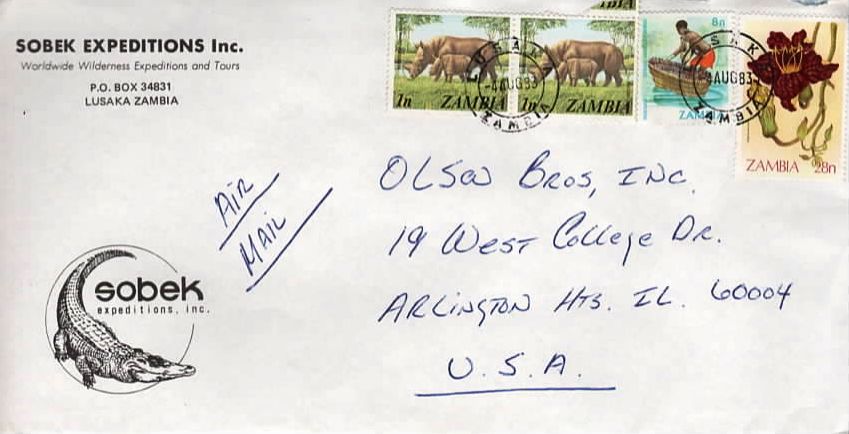 SOBEK EXPEDITIONS Inc.
Worldwide Wilderness Expeditions and Tours
P.O. BOX 34831
LUSAKA ZAMBIA
1n ZAMBIA
1n ZAMBIA
8n
ZAMBIA
ZAMBIA 28n
LUSAKA
-4AUG83
ZAMBIA
LUSAKA
-4AUG83
ZAMBIA
AIR
MAIL
OLSEN BROS, INC.
19 WEST COLLEGE DR.
ARLINGTON HTS. IL. 60004
U.S.A.
sobek
expeditions, inc.